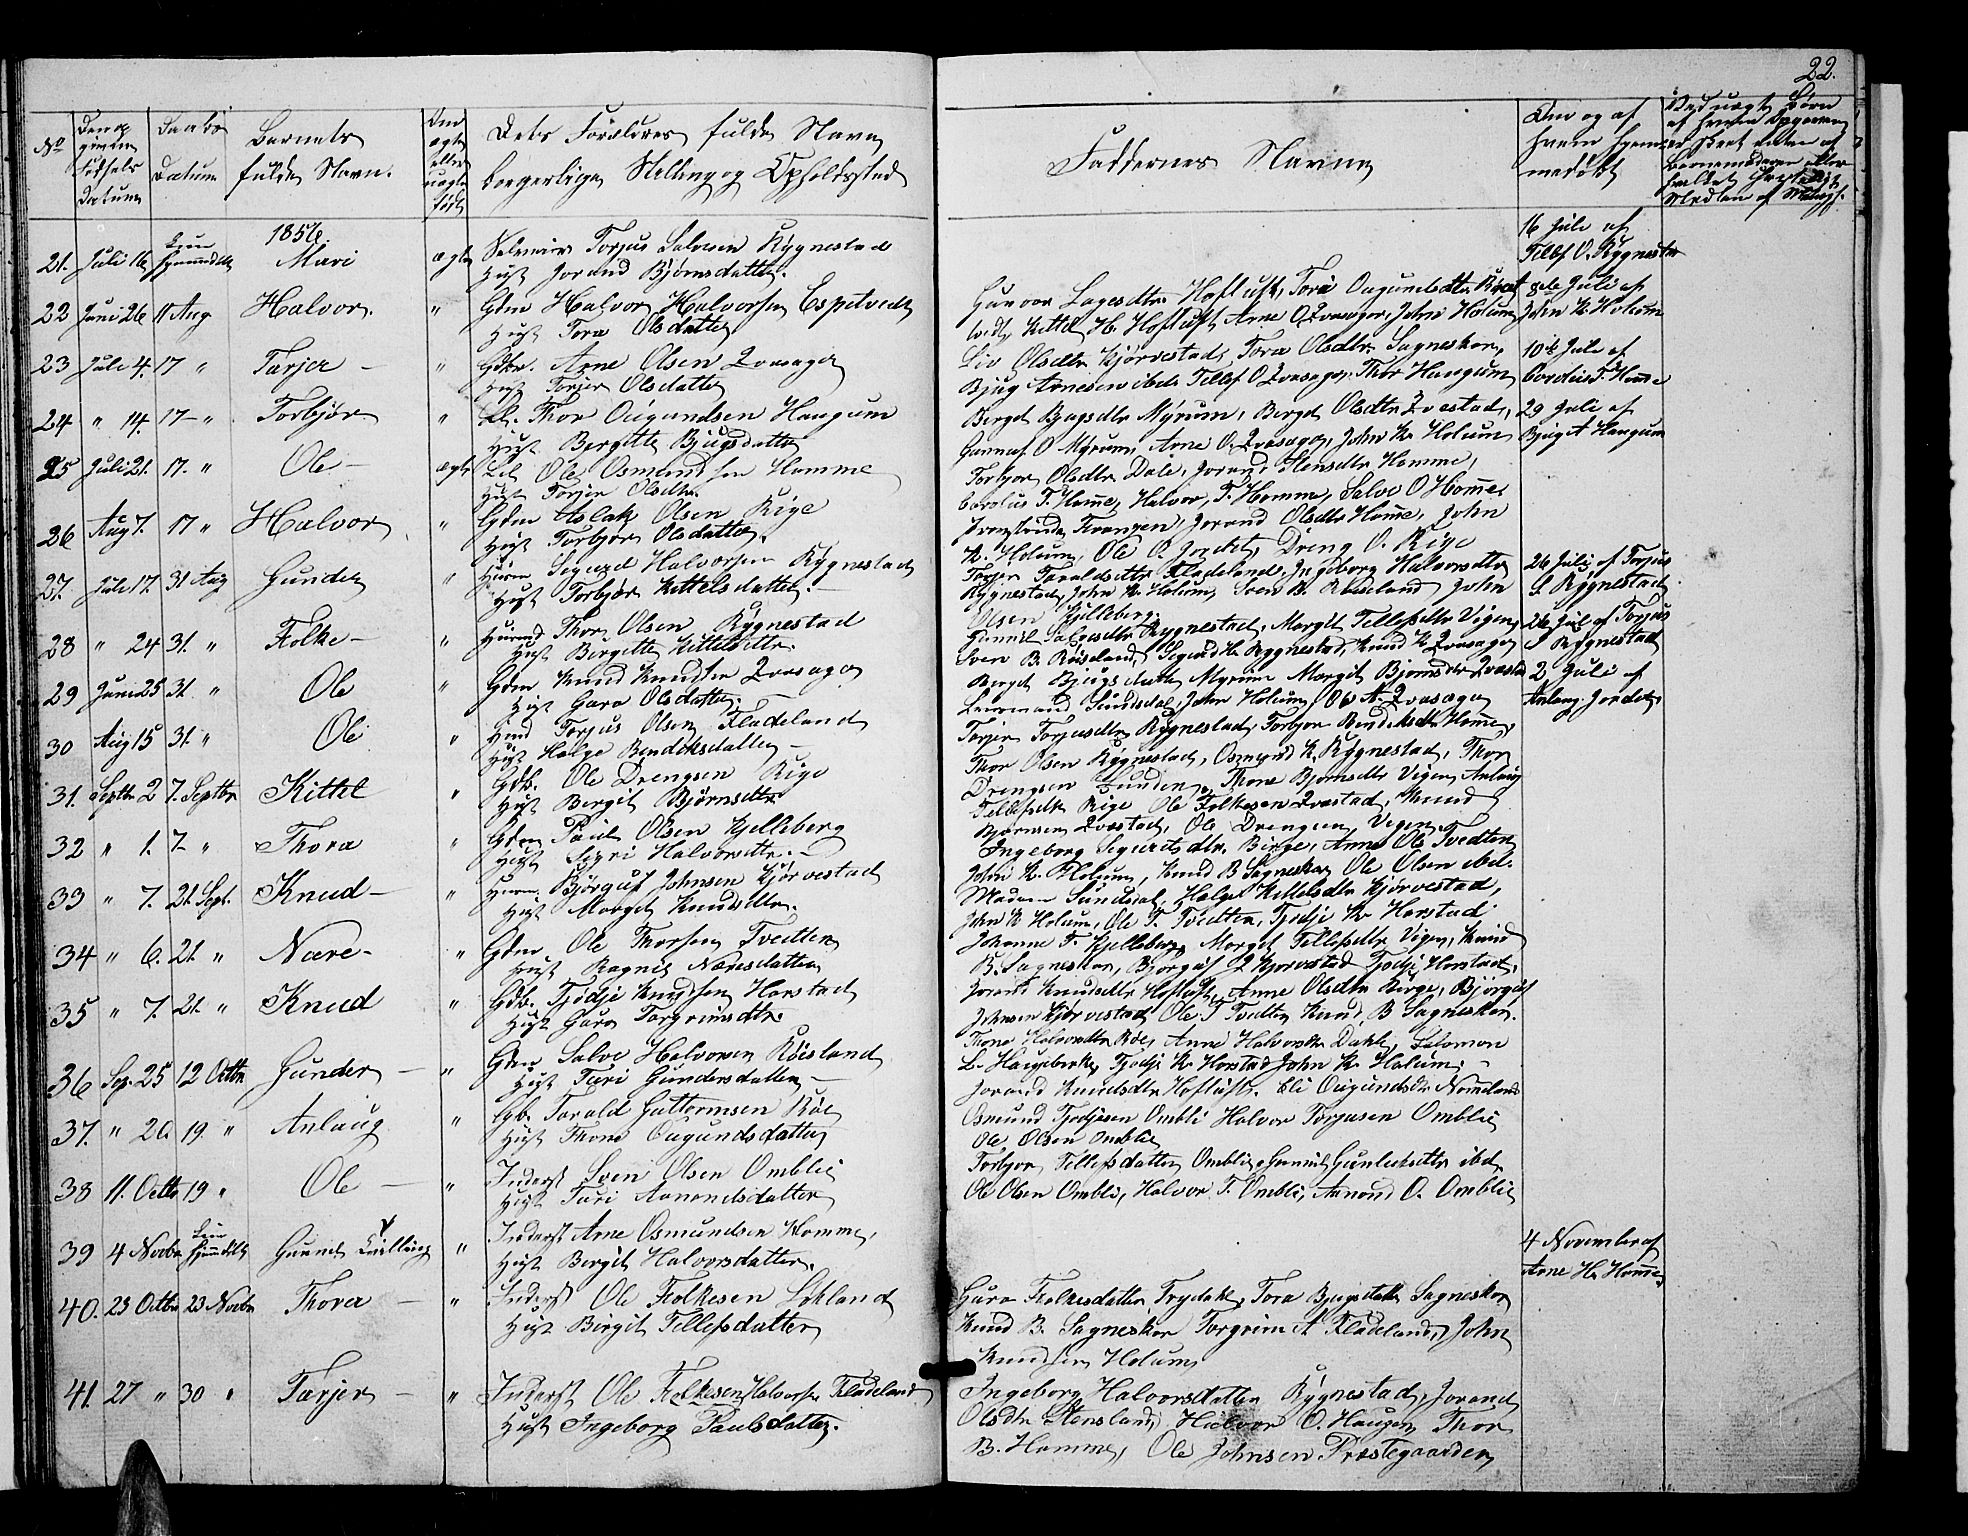 22.
No
Den op
givne
Fødsels
Datum
Daabs
Datum
Barnets
fulde Navn.
Om
ægte
eller
uægte
født
Dets Forældres fulde Navn
borgerlige Stilling og Opholdssted
Faddernes Navne
Om og af
hvem hjem
medøbt
1856
21. Juli 16 hjemmedøbt Mari ægte Torjus Salvesen Rygnestad
Hust Jorand Bjørnsdatter.
16 Juli af
Tellef O. Rygnestad
22 Juni 26 11 Aug Halvor. " Gdm Halvor Halvorsen Espetvedt
Hust Tora Olsdatter
Gunvor Lagesdtr Hoftuft, Tora Ougundsdtr
Kittel H. Hoftuft Arne O. Qvasager, John Holum
Juli af
John K. Holum
23 Juli 4. 17 " Tarjer – " Gdbr. Arne Olsen Qvasager
Hust Torjer Olsdatter
Liv Olsdtr Kjørvestad, Tora Olsdtr. Sagneskar,
Bjug Arnesen ibid. Tellef O Qvasager. Thor Haugum
10de Juli af
Cordius T. Homme
24 " 14. 17 – " Torbjør " Thor Ougundsen Haugum
Hust Bergitte Bjugsdatter
Berget Bjugsdtr Myrum, Berget Olsdtr Qvestad,
Gunnuf O Myrum, Arne O. Qvasager, John K. Holum
29 Juli af
Bjug A Haugum
25 Juli 21. 17. " Ole – ægte Ole Osmundsen Homme
Hust Torjer Olsdtr.
Torbjør Olsdtr Dale, Jorand Stensdtr Homme,
Cordius T. Home, Halvor T. Homme, Salve O Home.
26 Aug 7. 17 " Halvor " Gdm Aslak Olsen Rige
Hust Torbjør Olsdatter.
Franzen, Jorand Olsdtr Home, John
K. Holum, Ole O. Jordet, Dreng O. Rige
27. Juli 17. 31 Aug Gunder " Huusm Sigurd Halvorsen Rygnestad
Hust Torbjør Kittelsdatter. –
Torjer Taraldsdtr Fladeland, Ingeborg Halvorsdtr
Rygnestad, John K. Holum, Sven B. Røiseland John
Olsen Kjelleberg.
26 Juli af Torjus
S. Rygnestad
28 " 24 31. " Folke – " Thor Olsen Rygnestad
Hust Bergitte Kittelsdtr.
Gunnil Salvesdtr Rygnestad, Margit Tellefsdtr Vigen
Sven B. Røiseland, Sigurd H. Rygnestad, Knud K. Qvasager
26 Juli af Torjus
S Rygnestad
29 Juni 25 31. " Ole " Gdm Knud Knudsen Qvasager
Hust Guro Olsdatter.
Berget Bjugsdatter Myrum Margit Bjørnsdtr Qvestad
Sundsdal, John Holum, Ole A. Qvasager
2 Juli af
Anlaug Jordet.
30 Aug 15 31. " Ole " Torjus Olsen Fladeland
Hust Helge Bendiksdatter –
Torjer Torjusdtr Rygnestad, Torbjør Bendiksdtr Home,
Thor Olsen Rygnestad, Osmund K. Rygnestad, Thor
31. Septbr 2 7. Septbr Kittel " Gdb. Ole Drengsen Rige
Hust Bergit Bjørnsdtr
Drengsen Sunden, Thone Bjørnsdtr Vigen, Anlaug
Tellefsdtr Rige Ole Folkesen Qvestad, Knud
32 " 1. 7 – " Thora " Gdm Paul Olsen Kjelleberg
Hust Sigri Halvorsdtr. –
Bjørnsen Qvestad, Ole Drengsen Vigen
Ingeborg Sigurdsdtr. Birge, Anne Ols Tvedten
John K. Holum, Knud B Sagneskar Ole Olsen ibid.
33 " 7. 21 Sept. Knud – " Bjørguf Johnsen Kjørvestad
Hust Margit Knudsdtr.
Madam Sundsdal, Helge Kittelsdtr Kjørvestad,
John K Holum, Ole T. Tvedten, Tjodje K. Harstad
34 " 6. 21. " Nære – " Gdm Ole Thorsen Tvedten
Hust Ragnil Næresdatter
Johanne F. Kjelleberg, Margit Tellefsdtr Vigen, Knud
B. Sagneskar, Bjørguf J Kjørvestad Tjodje Harstad.
35 " 7. 21. " Knud " Gdb. Tjodje Knudsen Harstad
Hust Guro Torgrimsdtr.
Jorand Knudsdtr Hoftuft, Anne Olsdtr Birge, Bjørguf
Johnsen Kjørvestad Ole T Tvedten Knud B Sagneskar.
36 Sep. 25 12 Octbr Gunder – " Gdm Salve Halvorsen Røisland
Hust Turi Gundersdatter –
Thone Halvorsdtr Røe, Anne Halvorsdtr Dahle, Salomon
L. Haugeberke, Tjodje K. Harstad John K. Holum. –
37. " 20 19. " Anlaug " Gdb. Tarald Guttormsen Røe
Hust Thone Ougundsdatter
Jorand Knudsdtr Hoftuft. Eli Ougundsdtr Nomeland
Osmund Tjodjesen Omblie Halvor Torjusen Omblie
Ole Olsen Omblie
38 11. Octbr 19 " Ole – " Inderst Sven Olsen Omblie
Hust Turi Aanondsdatter
Torbjør Tellefsdatter Omblie, Gunnil Gunleiksdtr ibd.
Ole Olsen Omblie, Halvor T. Omblie, Aanund O. Omblie
39 4 Novbr hjemmedøbt Gunnil Tvilling " Inderst Arne Osmundsen Homme,
Hust Bergit Halvorsdatter.
4 November af
Arne H. Homme
40. 23 Octbr 23 Novbr Thora – " Inderst Ole Folkesen Løkland
Hust Birgit Tellefsdatter
Guro Folkesdatter Frydahl, Tora Bjugsdatter Sagneskar
Knud B. Sagneskar Torgrim A Fladeland, John
Knudsen Holum
41. 27 " 30 " Tarjer – " Inderst Ole Folkesen Halvorsen Fladeland
Hust Ingeborg Paulsdatter.
Ingeborg Halvorsdatter Rygnestad, Jorand
Olsdtr Stensland, Halvor O. Haugen Thor
B. Homme, Ole Johnsen Præstegaarden